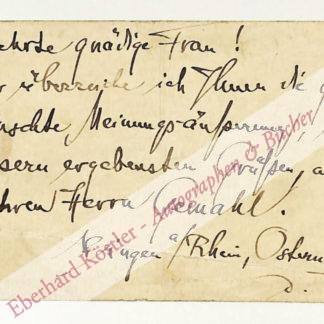 ehrte gnädige Frau!
r überreiche ich Ihnen die g
nschte, Meinungsäußerung,
sern ergebensten Grüßen, a
hren Herrn Gemahl.
Bingen a/Rhein, Ostern
d.
Eberhard Köstler - Autographen & Bücher